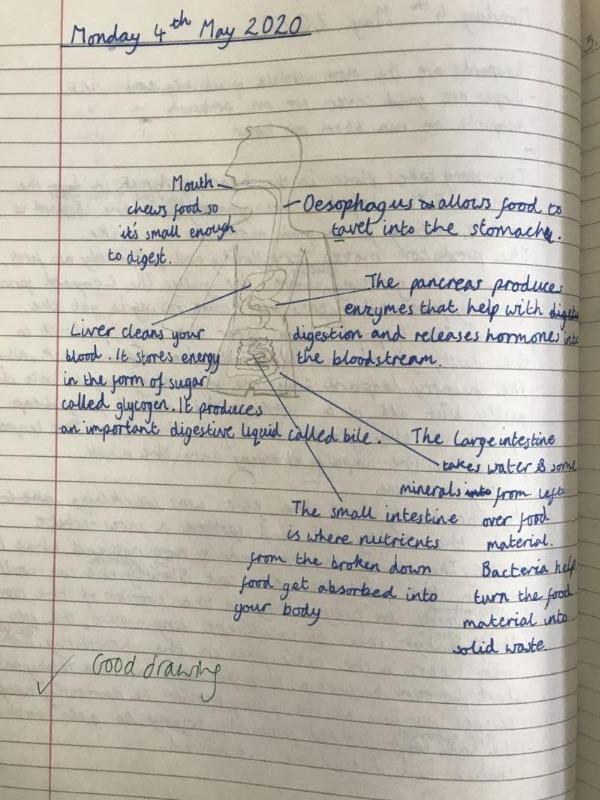 Monday 4th May 2020
Mouth
chews food so
it's small enough
to digest.
Oesophagus allows food to
tavel into the stomach.
The pancreas produces
enzymes that help with
digestion and releases hormones into
the bloodstream.
Liver cleans your
blood. It stores energy
in the form of sugar
called glycogen. It produces
an important digestive liquid called bile.
The large intestine
takes water & some
minerals from left
over food
material.
Bacteria help
turn the food
material into
solid waste.
The small intestine
is where nutrients
from the broken down
food get absorbed into
your body
Good drawing